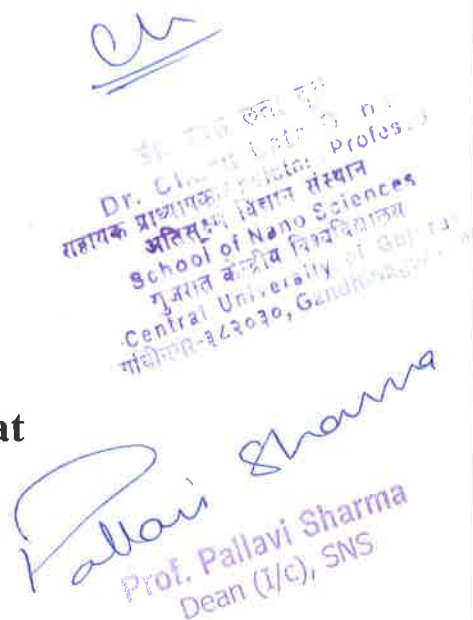 Dr.
सहायक प्राध्यापक
अतिसूक्ष्म विज्ञान संस्थान
School of Nano Sciences
गुजरात केन्द्रीय विश्वविद्यालय
Central University of
गांधीनगर-३८२०३०,
at
Pallavi Sharma
Prof. Pallavi Sharma
Dean (I/C), SNS